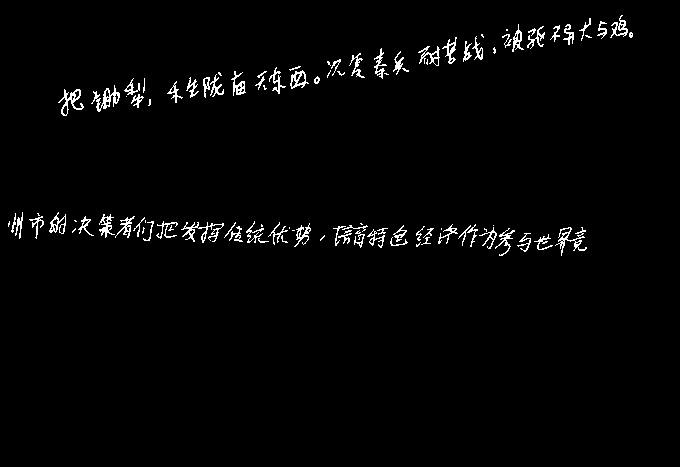 把锄犁，禾生陇亩无东西。况复秦兵耐苦战，被驱不异犬与鸡。
州市的决策者们把发挥传统优势，培育特色经济作为参与世界竞